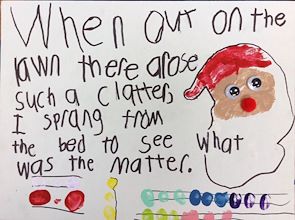 When out on the
lawn there arose
such a clatter,
I sprang from
the bed to see what
was the matter.